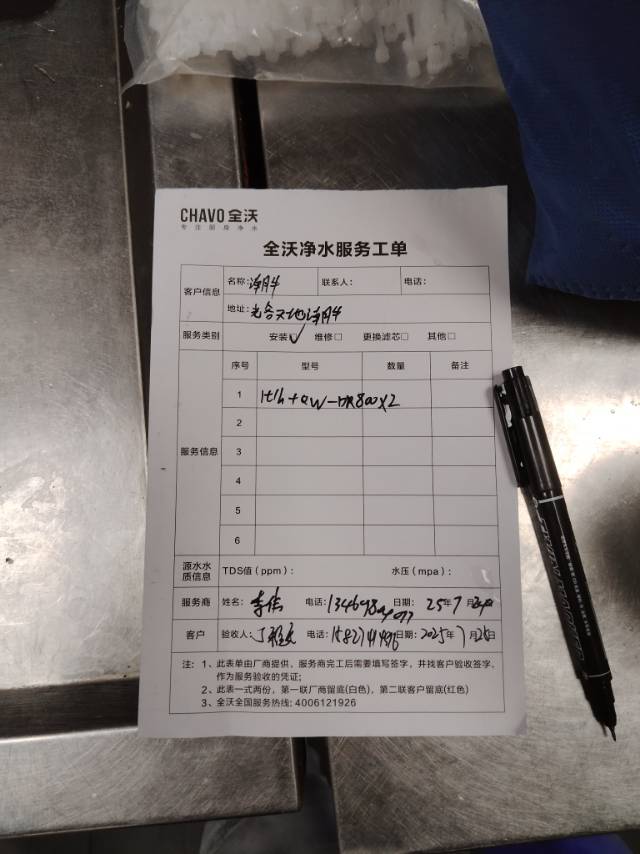 CHAVO 全沃
专注厨房净水
全沃净水服务工单
客户信息
名称:
联系人:
电话:
地址:
服务类别
安装☑ 维修□ 更换滤芯□ 其他□
服务信息
序号 型号 数量 备注
1
2
3
4
5
6
源水水质信息
TDS值(ppm): 水压(mpa):
服务商 姓名: 李伟 电话: 日期: 25年7月
客户 验收人: 电话: 日期: 2025年7月
注: 1、此表单由厂商提供,服务商完工后需要填写签字,并找客户验收签字,
作为服务验收的凭证;
2、此表一式两份,第一联厂商留底(白色),第二联客户留底(红色)
3、全沃全国服务热线: 4006121926